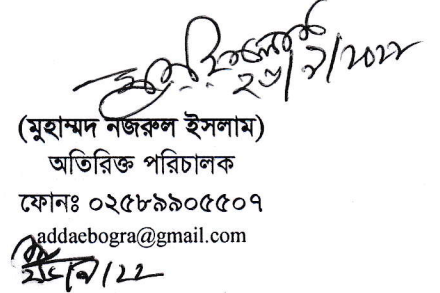 ২৬/৯/২০২২
(মুহাম্মদ নজরুল ইসলাম)
অতিরিক্ত পরিচালক
ফোনঃ ০২৫৮৯৯০৫৫০৭
addaebogra@gmail.com